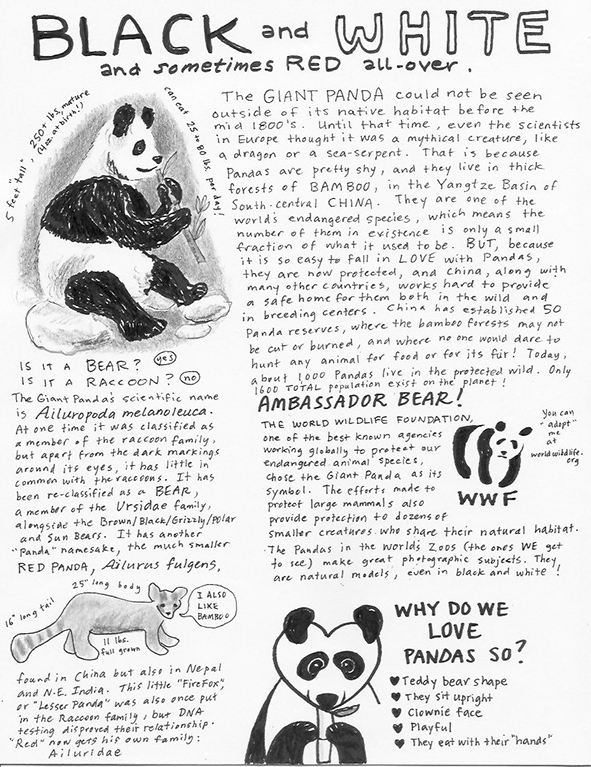 BLACK and WHITE
and sometimes RED all-over.
5 feet "tall", 250+ lbs. mature
(4oz. at birth!)
can eat 25 to 80 lbs. per day!
The GIANT PANDA could not be seen
outside of its native habitat before the
mid 1800's. Until that time, even the scientists
in Europe thought it was a mythical creature, like
a dragon or a sea-serpent. That is because
Pandas are pretty shy, and they live in thick
forests of BAMBOO, in the Yangtze Basin of
South-central CHINA. They are one of the
world's endangered species, which means the
number of them in existence is only a small
fraction of what it used to be. BUT, because
it is so easy to fall in LOVE with Pandas,
they are now protected, and China, along with
many other countries, works hard to provide
a safe home for them both in the wild and
in breeding centers. China has established 50
Panda reserves, where the bamboo forests may not
be cut or burned, and where no one would dare to
hunt any animal for food or for its fur! Today,
about 1,000 Pandas live in the protected wild. Only
1600 TOTAL population exist on the planet!
IS IT A BEAR? yes
IS IT A RACCOON? no
The Giant Panda's scientific name
is Ailuropoda melanoleuca.
At one time it was classified as
a member of the raccoon family,
but apart from the dark markings
around its eyes, it has little in
common with the raccoons. It has
been re-classified as a BEAR,
a member of the Ursidae family,
alongside the Brown/Black/Grizzly/Polar
and Sun Bears. It has another
"Panda" namesake, the much smaller
RED PANDA, Ailurus fulgens,
16" long tail
25" long body
11 lbs.
full grown
I ALSO
LIKE
BAMBOO
found in China but also in Nepal
and N.E. India. This little "FireFox",
or "Lesser Panda" was also once put
in the Raccoon family, but DNA
testing disproved their relationship.
"Red" now gets his own family:
Ailuridae
AMBASSADOR BEAR!
THE WORLD WILDLIFE FOUNDATION,
one of the best known agencies
working globally to protect our
endangered animal species,
chose the Giant Panda as its
symbol. The efforts made to
protect large mammals also
provide protection to dozens of
smaller creatures who share their natural habitat.
The Pandas in the World's Zoos (the ones WE get
to see) make great photographic subjects. They
are natural models, even in black and white!
WWF
You can
"adopt"
me
at
worldwildlife.
org
WHY DO WE
LOVE
PANDAS SO?
♥Teddy bear shape
♥They sit upright
♥Clownie face
♥Playful
♥They eat with their "hands"